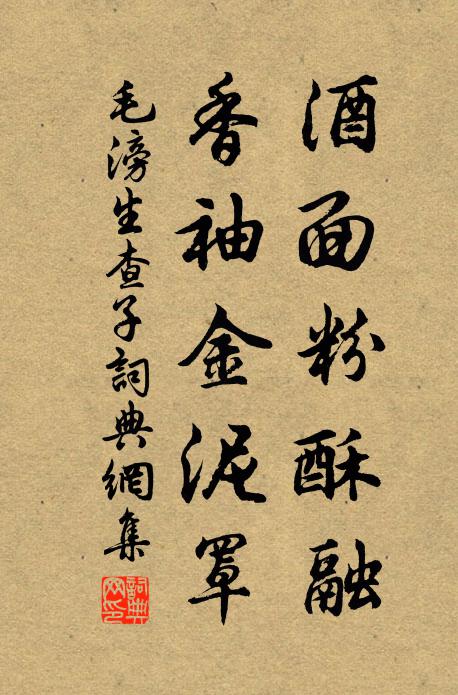 酒面粉酥融
香袖金泥罩
毛滂生查子詞典網集
詞典網印